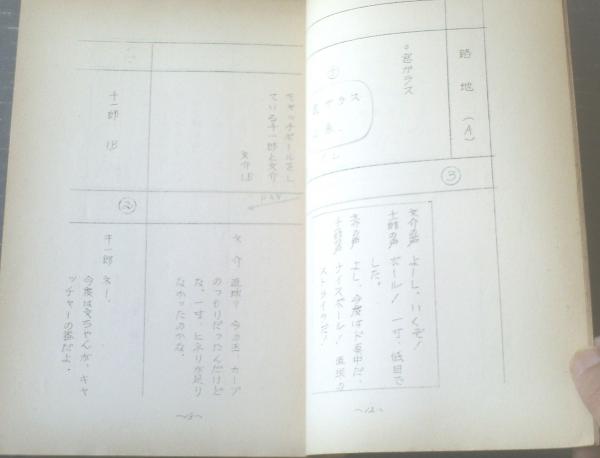 路地(A)
③
○窓ガラス
①
ガラス
文介の声 よーし、いくぞ!
千一郎の声 ボール! 一寸、低目で
した。
文介の声 よし、今度はど真中だ。
千一郎の声 ナイスボール! 直球の
ストライクだ!
~12~
キャッチボールをし
ている千一郎と文介
文介 1B
PAN
文介 直球? 今の玉、カーブ
のつもりだったんだけど
な。一寸、ヒネリが足り
なかったのかな。
千一郎 1B
②
千一郎 ネー。
今度は文ちゃんが、キャ
ッチャーの番だよ。
~13~